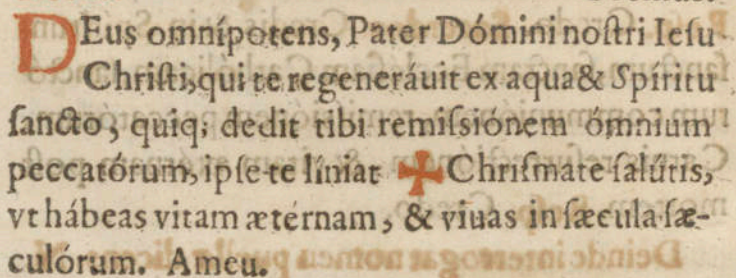 DEus omnípotens, Pater Dómini noſtri Ieſu
Chriſti, qui te regeneráuit ex aqua & Spíritu
ſancto, quiq; dedit tibi remiſsiónem ómnium
peccatórum, ipſe te líniat ✠ Chriſmate ſalútis,
vt hábeas vitam ætérnam, & viuas in ſæcula ſæ-
culórum. Ameu.